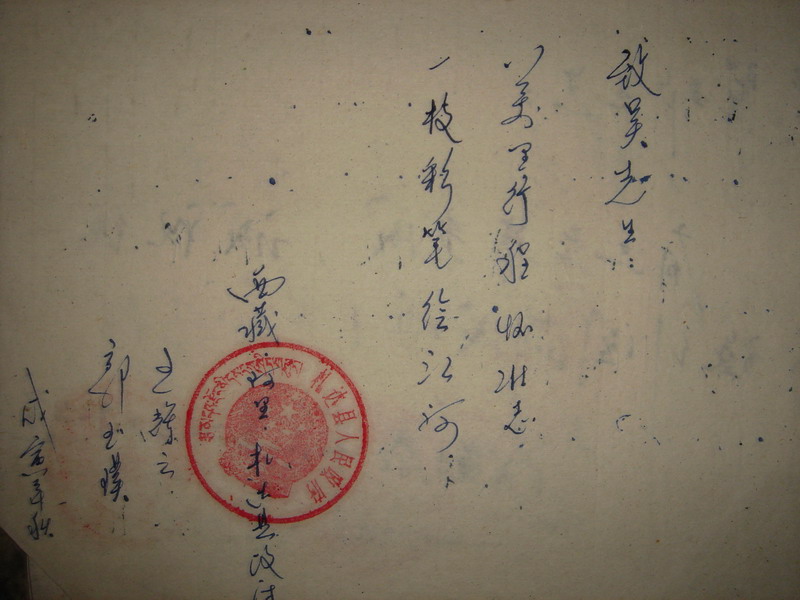 致吴先生：
八万里行程怀壮志
一枝彩笔绘江河
西藏阿里札达县政法
王燕云
郭玉璞
戊寅年秋
札达县人民政府